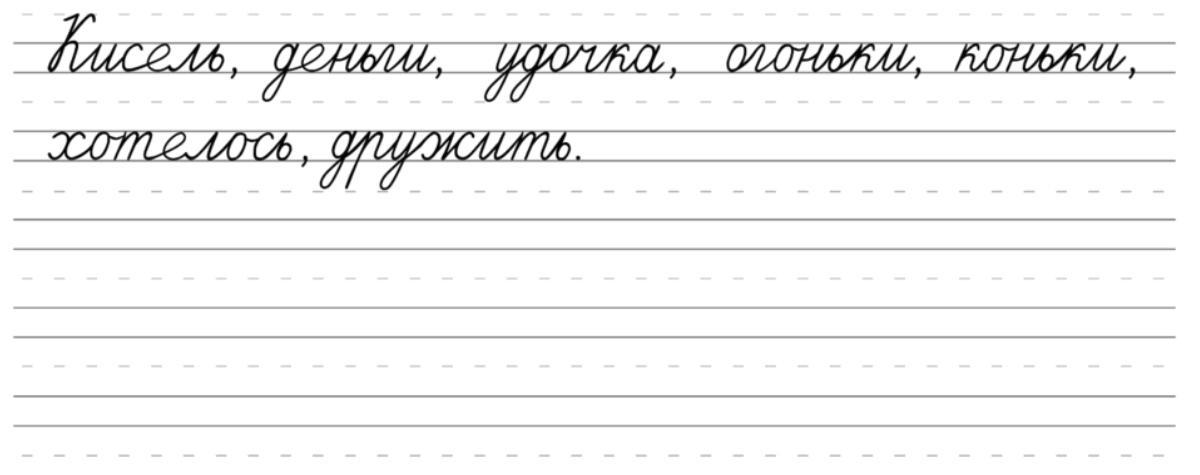 Кисель, деньги, удочка, огоньки, коньки,
хотелось, дружить.